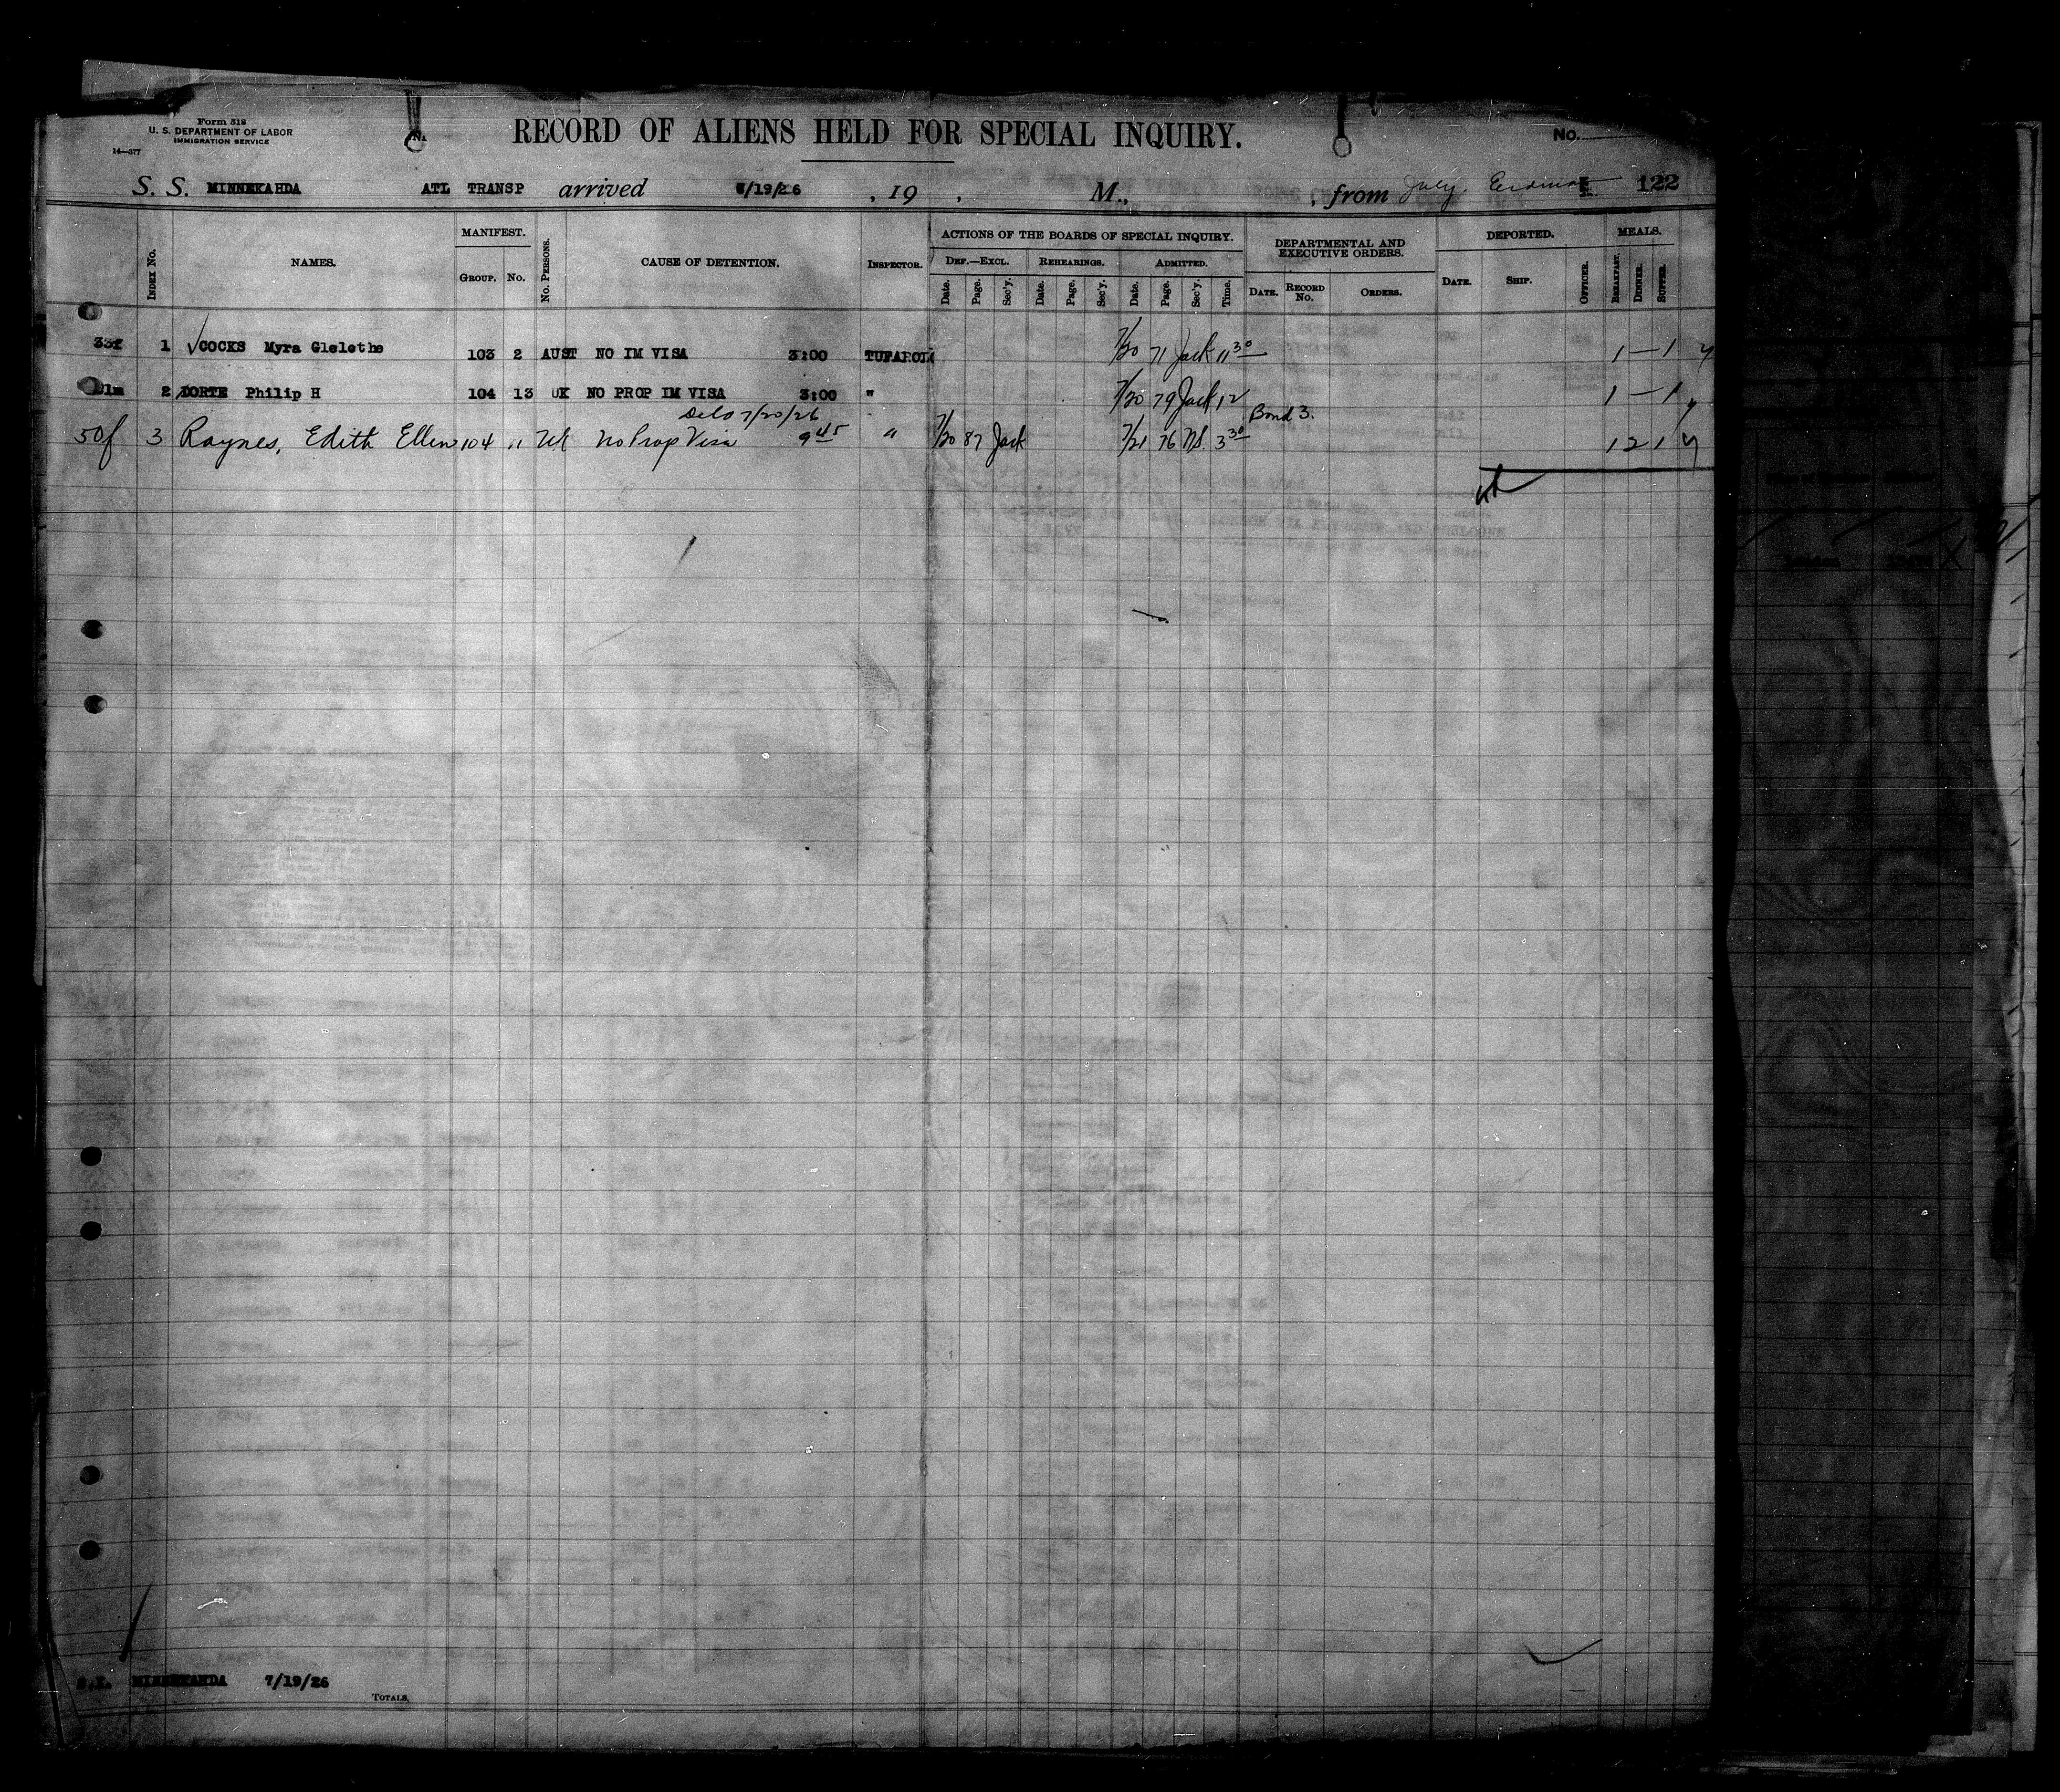 Form 518
U. S. DEPARTMENT OF LABOR
IMMIGRATION SERVICE
14—377
RECORD OF ALIENS HELD FOR SPECIAL INQUIRY.
No.
S. S. MINNEKAHDA ATL TRANSP arrived 7/19/26 , 19 , M., , from July 122
Index No. NAMES. MANIFEST. GROUP. No. No. PERSONS. CAUSE OF DETENTION. INSPECTOR. ACTIONS OF THE BOARDS OF SPECIAL INQUIRY. DEF.—EXCL. REHEARINGS. ADMITTED. Date. Page. Sec'y. Date. Page. Sec'y. Date. Page. Sec'y. Time. DEPARTMENTAL AND EXECUTIVE ORDERS. DATE. RECORD No. ORDERS. DEPORTED. DATE. SHIP. OFFICER. MEALS. BREAKFAST. DINNER. SUPPER.
33f 1 COCKS Myra 103 2 AUST NO IM VISA 3:00 7/20 71 Jack 11 30 1 — 1
2 Philip H 104 13 UK NO PROP IM VISA 3:00 " 7/20 79 Jack 12 1 — 1
7/20/26 Bond 3.
50f 3 Raynes, Edith Ellen 104 11 UK No Prop Visa 9 45 " 7/20 87 Jack 7/21 76 3 30 1 2 1
S.I. MINNEKAHDA 7/19/26
TOTALS,